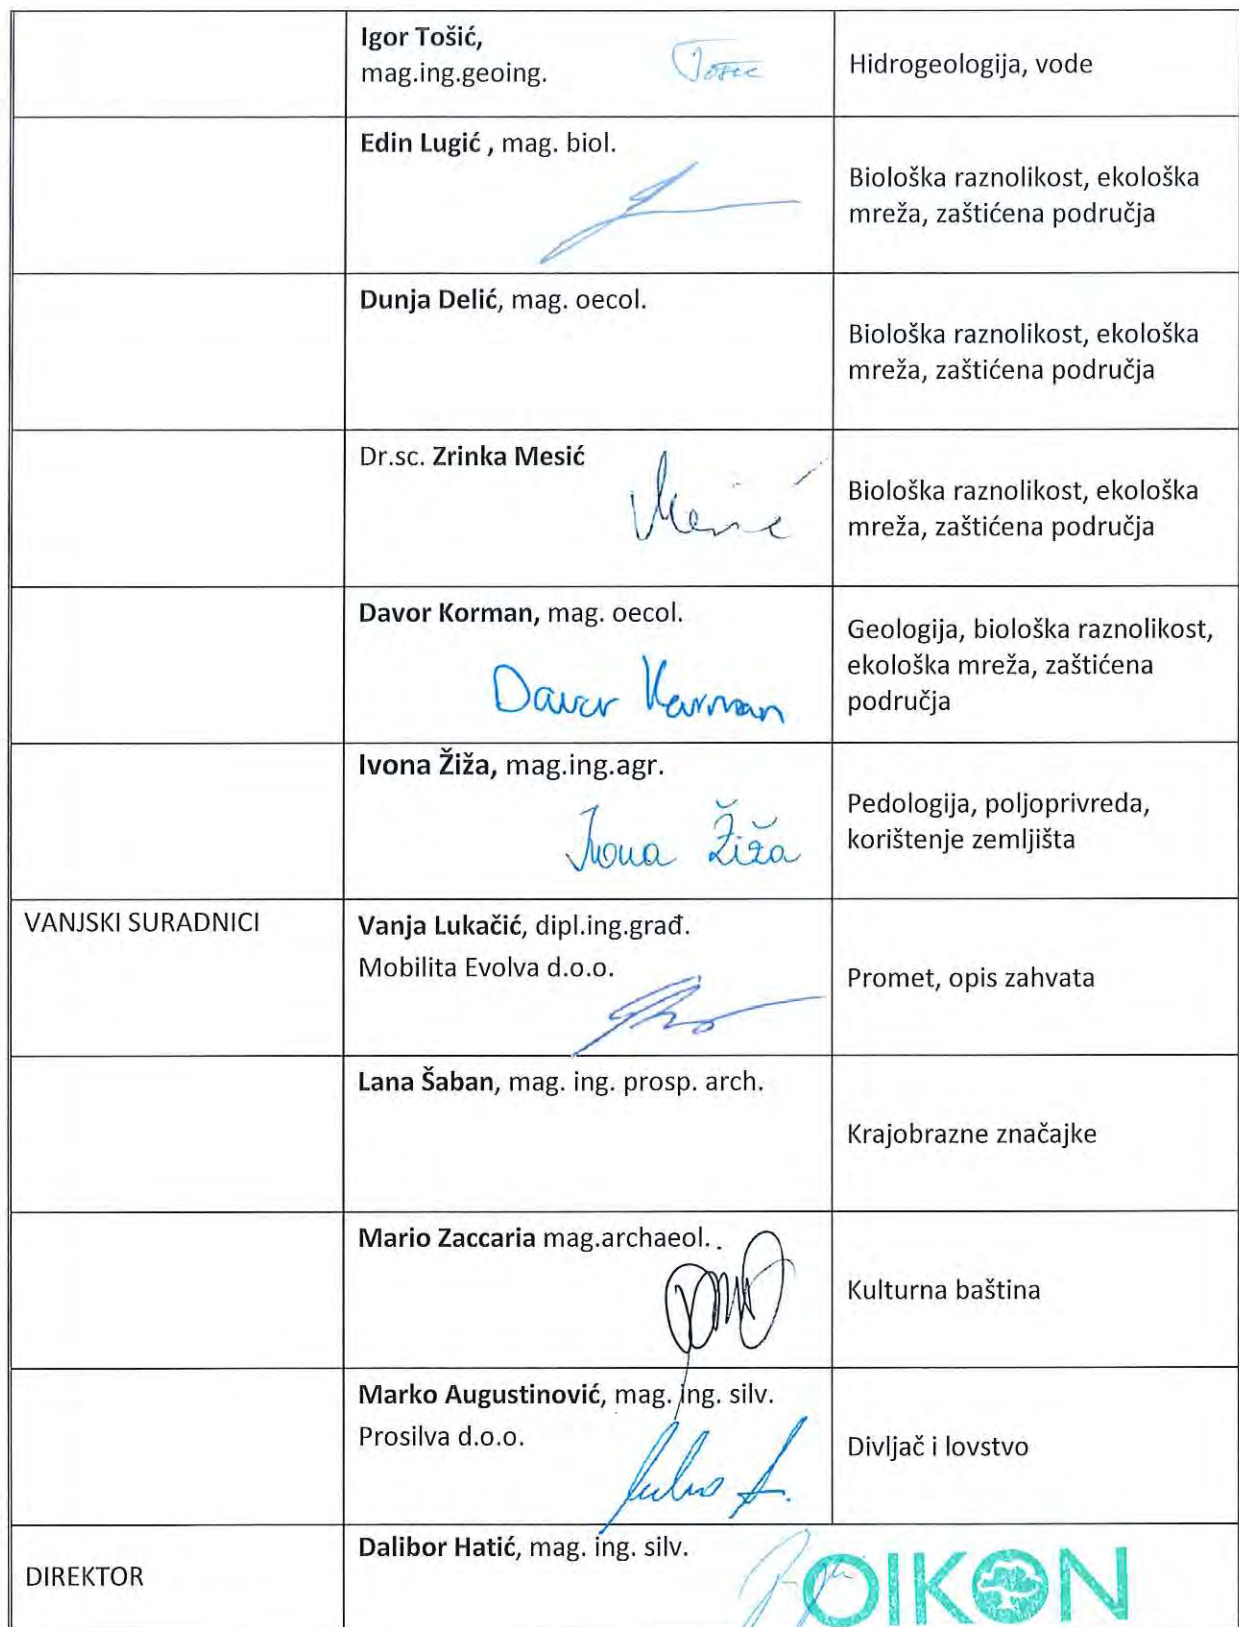 Igor Tošić,
mag.ing.geoing.
Tošić
Hidrogeologija, vode
Edin Lugić , mag. biol.
Biološka raznolikost, ekološka
mreža, zaštićena područja
Dunja Delić, mag. oecol.
Biološka raznolikost, ekološka
mreža, zaštićena područja
Dr.sc. Zrinka Mesić
Mesić
Biološka raznolikost, ekološka
mreža, zaštićena područja
Davor Korman, mag. oecol.
Davor Korman
Geologija, biološka raznolikost,
ekološka mreža, zaštićena
područja
Ivona Žiža, mag.ing.agr.
Ivona Žiža
Pedologija, poljoprivreda,
korištenje zemljišta
VANJSKI SURADNICI
Vanja Lukačić, dipl.ing.građ.
Mobilita Evolva d.o.o.
Promet, opis zahvata
Lana Šaban, mag. ing. prosp. arch.
Krajobrazne značajke
Mario Zaccaria mag.archaeol..
Kulturna baština
Marko Augustinović, mag. ing. silv.
Prosilva d.o.o.
Divljač i lovstvo
DIREKTOR
Dalibor Hatić, mag. ing. silv.
OIKON